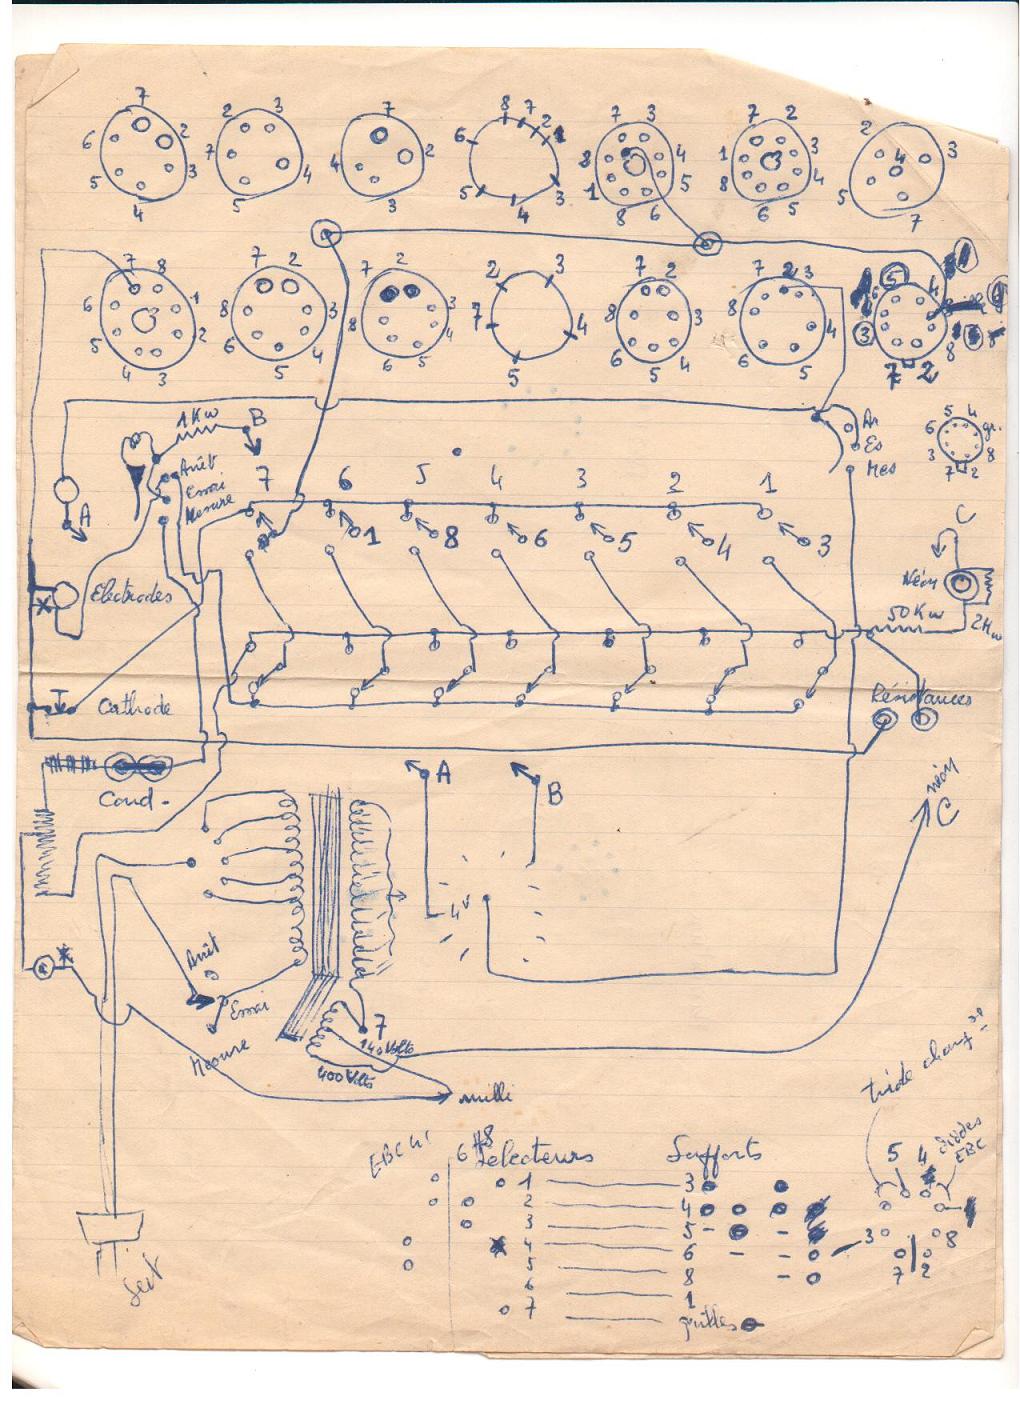 7 2 3 4 5 6
2 3 4 5 7
7 2 3 4
8 7 2 1 3 4 5 6
7 3 4 5 6 8 1 2
7 2 3 4 5 6 8 1
2 3 4 7 5
7 8 1 2 3 4 5 6
7 2 3 4 5 6 8
7 2 3 4 5 6 8
2 3 4 5 7
7 2 3 4 5 6 8
7 2 3 4 5 6 8
5 4 8 2 7 3
1 Kw
B
Arrêt
Essai
Mesure
Ar
Es
Mes
5 4
6 gr.
3 8
7 2
7 6 5 4 3 2 1
A
1 8 6 5 4 3
C
Electrodes
Néon
50 Kw
Cathode
Résistances
Cond.
A
B
néon
C
4v
Arrêt
Essai
Mesure
7
140 Volts
400 Volts
milli
triode
EBC 41
6H8
Sélecteurs
Supports
1 3
2 4
3 5
4 6
5 8
6 1
7 grilles
5 4
diodes
EBC
3 8
7 2